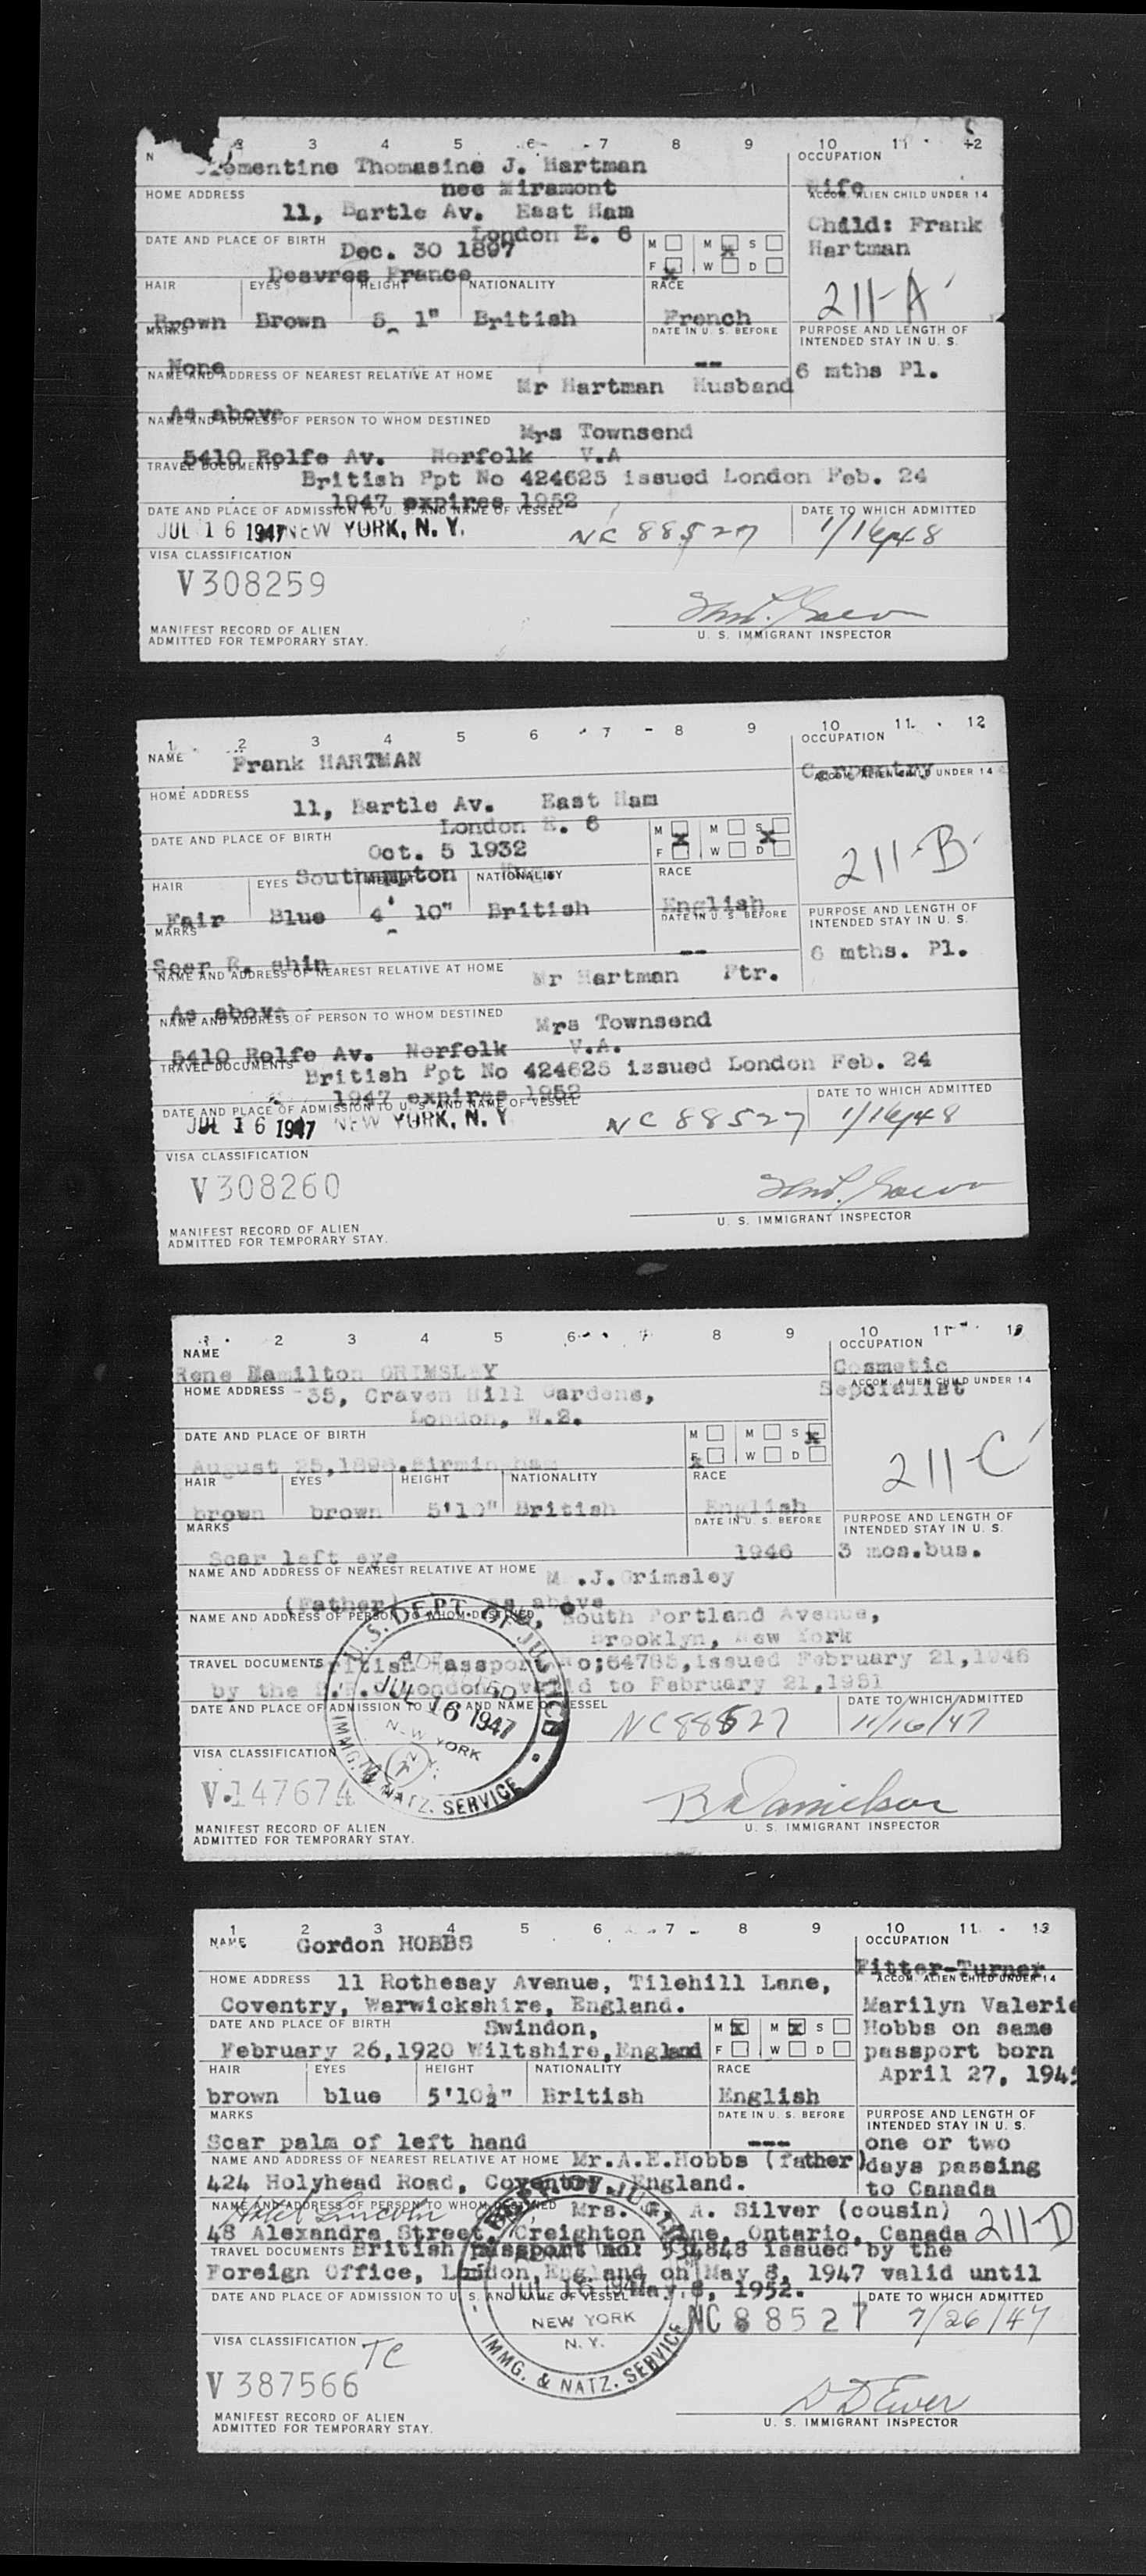 2 3 4 5 6 7 8 9 10 11 12
N
Thomasine J. Hartman
nee Miramont
OCCUPATION
Wife
HOME ADDRESS
11, Bartle Av. East Ham
London E. 6
ACCOM. ALIEN CHILD UNDER 14
Child: Frank
Hartman
DATE AND PLACE OF BIRTH
Dec. 30 1897
Desvres France
M M S
F W D
x x
211-A
HAIR EYES HEIGHT NATIONALITY RACE
Brown Brown 5 1" British French
MARKS DATE IN U. S. BEFORE
None --
PURPOSE AND LENGTH OF
INTENDED STAY IN U. S.
6 mths Pl.
NAME AND ADDRESS OF NEAREST RELATIVE AT HOME
Mr Hartman Husband
As above
NAME AND ADDRESS OF PERSON TO WHOM DESTINED
Mrs Townsend
5410 Rolfe Av. Norfolk V.A
TRAVEL DOCUMENTS
British Ppt No 424625 issued London Feb. 24
1947 expires 1952
DATE AND PLACE OF ADMISSION TO U. S. AND NAME OF VESSEL
DATE TO WHICH ADMITTED
JUL 16 1947 NEW YORK, N. Y. NC 88527 1/16/48
VISA CLASSIFICATION
V308259
MANIFEST RECORD OF ALIEN
ADMITTED FOR TEMPORARY STAY.
U. S. IMMIGRANT INSPECTOR
1 2 3 4 5 6 7 8 9 10 11 12
NAME
Frank HARTMAN
OCCUPATION
Carpentry
HOME ADDRESS
11, Bartle Av. East Ham
London E. 6
ACCOM. ALIEN CHILD UNDER 14
DATE AND PLACE OF BIRTH
Oct. 5 1932
Southampton
M M S
F W D
x x
211-B
HAIR EYES HEIGHT NATIONALITY RACE
Fair Blue 4' 10" British English
MARKS DATE IN U. S. BEFORE
Scar R. shin --
PURPOSE AND LENGTH OF
INTENDED STAY IN U. S.
6 mths. Pl.
NAME AND ADDRESS OF NEAREST RELATIVE AT HOME
Mr Hartman Ftr.
As above
NAME AND ADDRESS OF PERSON TO WHOM DESTINED
Mrs Townsend
5410 Rolfe Av. Norfolk V.A.
TRAVEL DOCUMENTS
British Ppt No 424625 issued London Feb. 24
1947 expires 1952
DATE AND PLACE OF ADMISSION TO U. S. AND NAME OF VESSEL
DATE TO WHICH ADMITTED
JUL 16 1947 NEW YORK, N. Y. NC 88527 1/16/48
VISA CLASSIFICATION
V308260
MANIFEST RECORD OF ALIEN
ADMITTED FOR TEMPORARY STAY.
U. S. IMMIGRANT INSPECTOR
1 2 3 4 5 6 7 8 9 10 11 12
NAME
Rene Hamilton GRIMSLEY
OCCUPATION
Cosmetic
Sepcialist
HOME ADDRESS
35, Craven Hill Gardens,
London, W.2.
ACCOM. ALIEN CHILD UNDER 14
DATE AND PLACE OF BIRTH
August 25, Birmingham
M M S
F W D
x x
211-C
HAIR EYES HEIGHT NATIONALITY RACE
brown brown 5'10" British English
MARKS DATE IN U. S. BEFORE
Scar left eye 1946
PURPOSE AND LENGTH OF
INTENDED STAY IN U. S.
3 mos.bus.
NAME AND ADDRESS OF NEAREST RELATIVE AT HOME
J.Grimsley
(Father) as above
NAME AND ADDRESS OF PERSON TO WHOM DESTINED
South Portland Avenue,
Brooklyn, New York
TRAVEL DOCUMENTS
British Passport No;64785,issued February 21,1946
by the London, valid to February 21,1951
DATE AND PLACE OF ADMISSION TO U. S. AND NAME OF VESSEL
DATE TO WHICH ADMITTED
NC88527 11/16/47
U.S. DEPT. OF JUSTICE
ADMITTED
JUL 16 1947
NEW YORK
N. Y.
IMMG. & NATZ. SERVICE
VISA CLASSIFICATION
V.147674
R Danielson
MANIFEST RECORD OF ALIEN
ADMITTED FOR TEMPORARY STAY.
U. S. IMMIGRANT INSPECTOR
1 2 3 4 5 6 7 8 9 10 11 12
NAME
Gordon HOBBS
OCCUPATION
Fitter-Turner
HOME ADDRESS 11 Rothesay Avenue, Tilehill Lane,
Coventry, Warwickshire, England.
ACCOM. ALIEN CHILD UNDER 14
Marilyn Valerie
Hobbs on same
passport born
April 27, 1945
DATE AND PLACE OF BIRTH
Swindon,
February 26,1920 Wiltshire,England
M x M x S
F W D
HAIR EYES HEIGHT NATIONALITY RACE
brown blue 5'10½" British English
MARKS DATE IN U. S. BEFORE
Scar palm of left hand ---
PURPOSE AND LENGTH OF
INTENDED STAY IN U. S.
one or two
days passing
to Canada
NAME AND ADDRESS OF NEAREST RELATIVE AT HOME Mr.A.E.Hobbs (father)
424 Holyhead Road, Coventry, England.
NAME AND ADDRESS OF PERSON TO WHOM DESTINED Mrs. G. A. Silver (cousin)
Hotel Lincoln
48 Alexandra Street, Creighton Mine, Ontario, Canada 211-D
TRAVEL DOCUMENTS British passport no: 534848 issued by the
Foreign Office, London,England on May 8, 1947 valid until
May 8, 1952.
DATE AND PLACE OF ADMISSION TO U. S. AND NAME OF VESSEL
DATE TO WHICH ADMITTED
NC 88527 7/26/47
JUL 16 1947
NEW YORK
N. Y.
IMMG. & NATZ. SERVICE
VISA CLASSIFICATION TC
V 387566
D D Ewer
MANIFEST RECORD OF ALIEN
ADMITTED FOR TEMPORARY STAY.
U. S. IMMIGRANT INSPECTOR